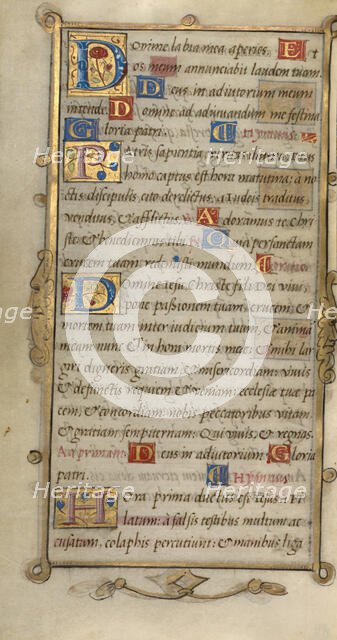 Domine labia mea aperies. Et
os meum annunciabit laudem tuam.
Deus in adiutorium meum
intende. Domine ad adiuuandum me festina
Gloria patri.
Patris sapientia
homo captus est hora matutina: a no-
tis discipulis, cito derelictus, a Iudeis traditus,
venditus, & afflictus. Adoramus te Chri
ste: & benedicimus tibi Quia per sanctam
crucem tuam redemisti mundum. Oratio.
Domine Iesu Christe fili Dei viui
pone passionem tuam crucem: &
mortem tuam inter iudicium tuum: & anima
meam nunc & in hora mortis mee: & mihi lar
giri digneris gratiam: & misericordiam: viuis
& defunctis requiem & veniam: ecclesiæ tuæ pa
cem, & concordiam: nobis peccatoribus vitam,
& gratiam sempiternam: Qui viuis, & regnas.
Ad primam. Deus in adiutorium. Gloria
patri. Hymnus
Hora prima ductus est Iesus: a Pi
latum: a falsis testibus multum ac
cusatum, colaphis percutiunt: & manibus liga
Heritage